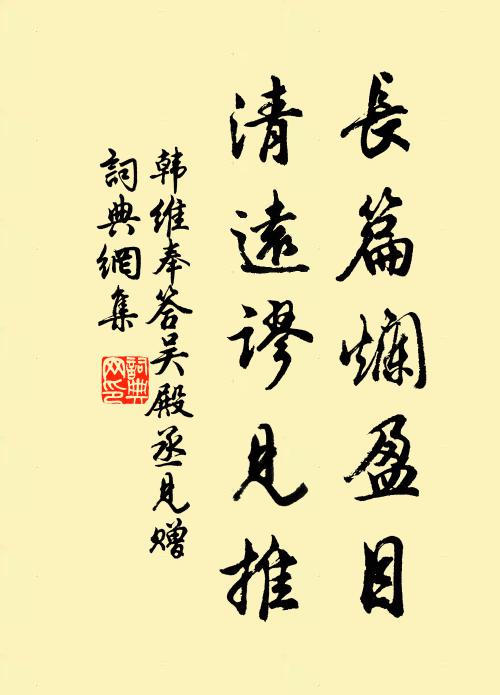 長篇爛盈目
清遠謬見推
韩維奉答吴殿丞見赠
詞典網集
詞典
网印